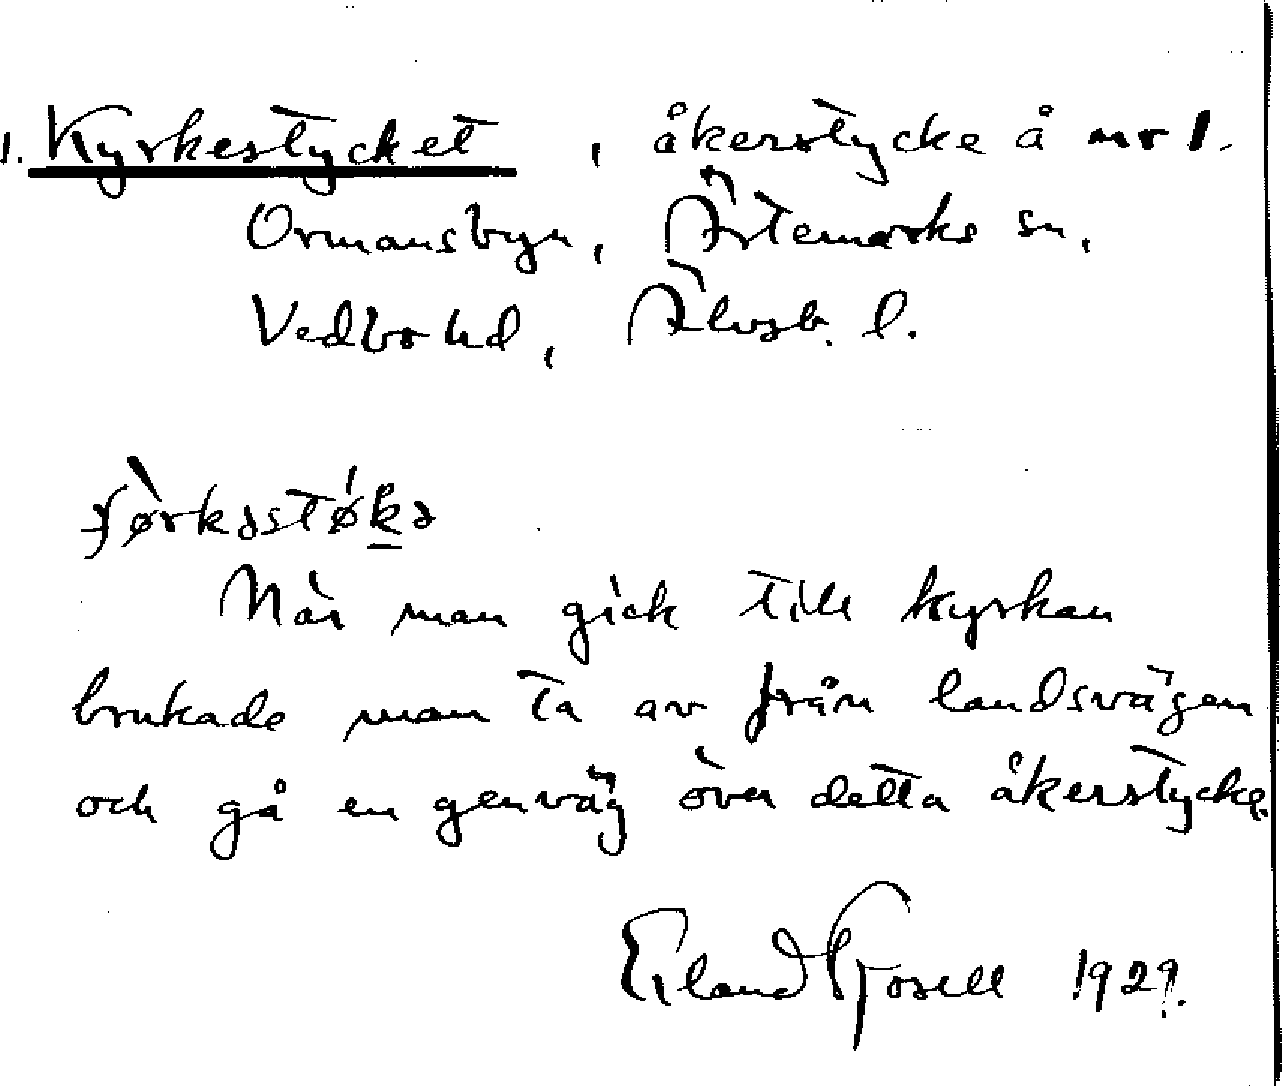 1. Kyrkestycket, åkerstycke å nr 1.
Ormansbyn, Ärtemarks sn,
Vedbo hd, Älvsb. l.
När man gick till kyrkan
brukade man ta av från landsvägen
och gå en genväg över detta åkerstycke.
Erland Rosell 1929.